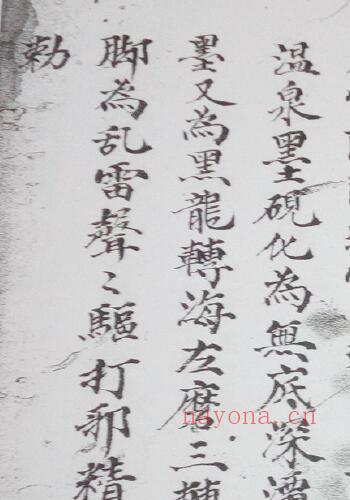 温泉墨硯化為無底深潭
墨又為黑龍轉海左磨三轉
脚為乱雷聲〻驅打邪精
勅
nayona.cn